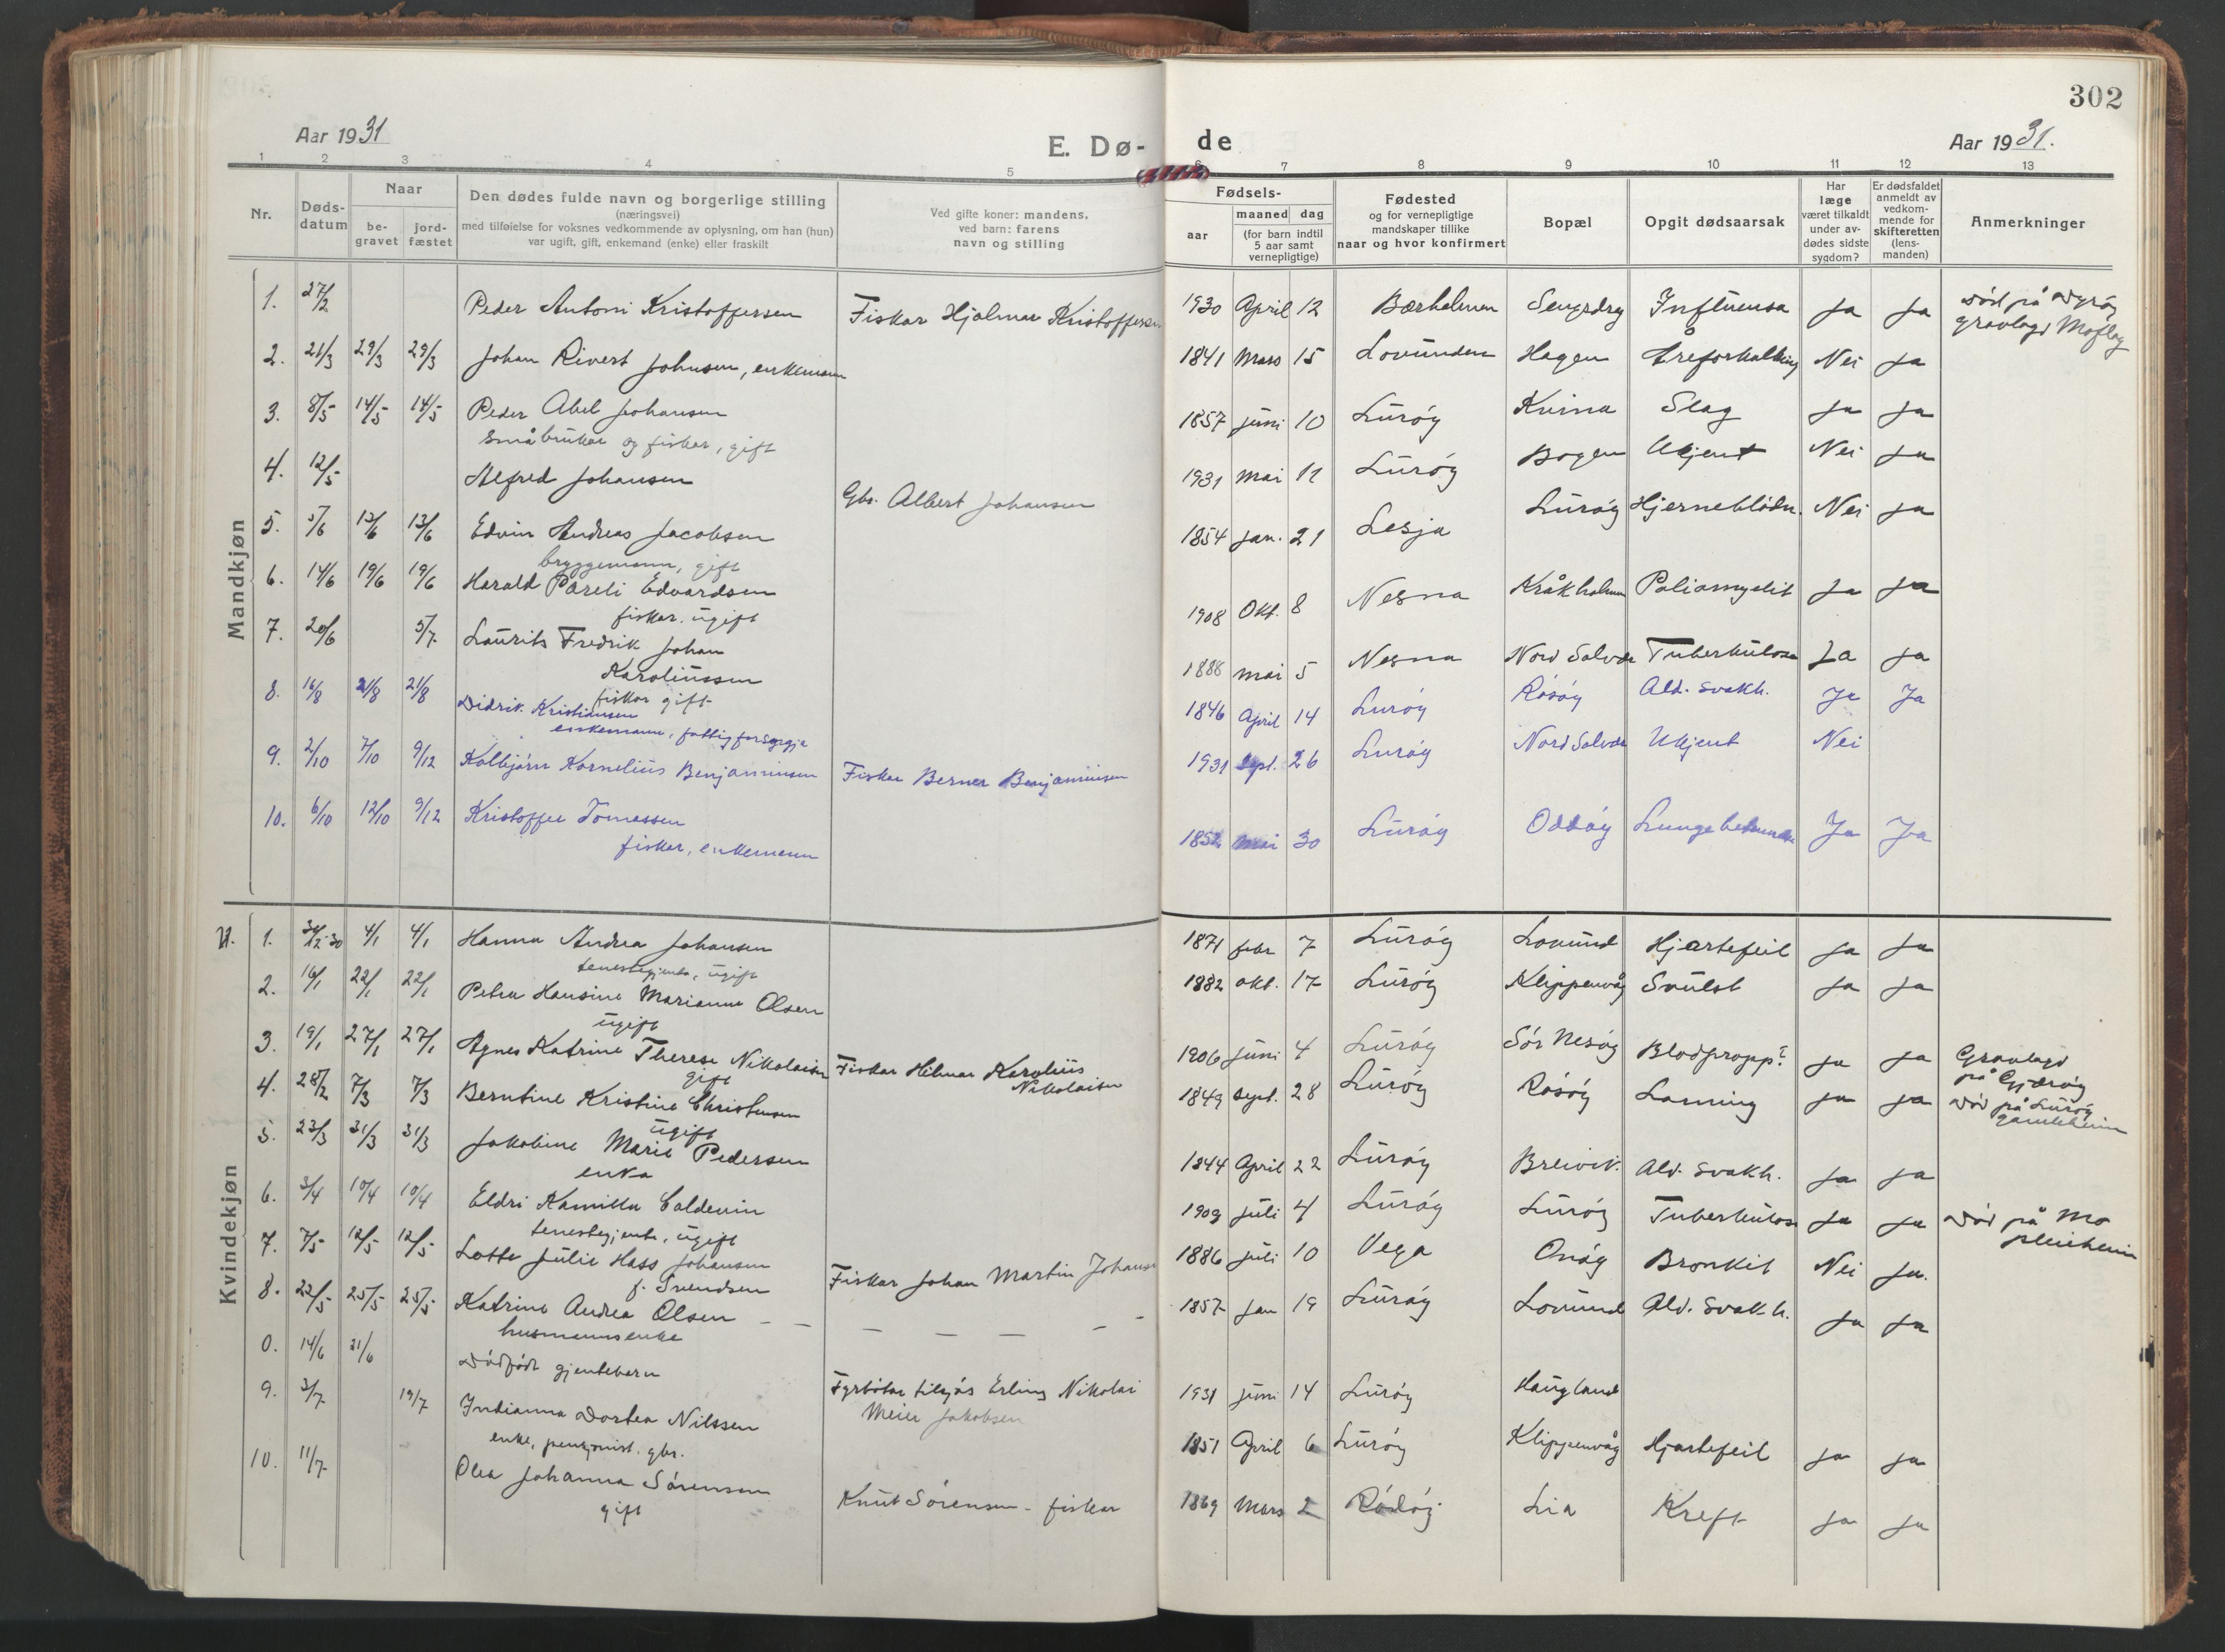 302
Aar 1931
E. Dø-
de
Aar 1931.
1 2 3 4 5 6 7 8 9 10 11 12 13
Nr.
Døds-
datum
Naar
be-
gravet
jord-
fæstet
Den dødes fulde navn og borgerlige stilling
(næringsvei)
med tilføielse for voksnes vedkommende av oplysning, om han (hun)
var ugift, gift, enkemand (enke) eller fraskilt
Ved gifte koner: mandens,
ved barn: farens
navn og stilling
Fødsels-
aar
maaned dag
(for barn indtil
5 aar samt
vernepligtige)
Fødested
og for vernepligtige
mandskaper tillike
naar og hvor konfirmert
Bopæl
Opgit dødsaarsak
Har
læge
været tilkaldt
under av-
dødes sidste
sygdom?
Er dødsfaldet
anmeldt av
vedkom-
mende for
skifteretten
(lens-
manden)
Anmerkninger
Mandkjøn
1. 27/2 Peder Antoni Kristoffersen Fiskar Hjalmar Kristoffersen 1930 April 12 Influensa Ja Ja Död på
gravlagd
2. 21/3 29/3 29/3 Johan Rivert Johnsen, enkemann 1841 Mars 15 Lovunden Hagen Åreforkalking Nei Ja
3. 8/5 14/5 14/5 Peder Abel Johansen 1857 juni 10 Luröy Kvina Slag Ja Ja
småbrukar og fiskar, gift
4. 12/5 Alfred Johansen Gbr. Albert Johansen 1931 Mai 11 Luröy Bogen Ukjent Nei Ja
5. 5/6 13/6 13/6 Edvin Andreas Jacobsen 1854 Jan. 21 Lesja Luröy Hjerneblödn. Nei Ja
bryggemann, gift
6. 14/6 19/6 19/6 Harald Pareli Edvardsen 1908 Okt. 8 Nesna Kråkholmen Poliomyelit Ja Ja
fiskar, ugift
7. 20/6 5/7 Laurits Fredrik Johan 1888 Mai 5 Nesna Nord Solvær Tuberkulose Ja Ja
Karoliussen
fiskar gift
8. 16/8 21/8 21/8 Didrik Kristiansen 1846 April 14 Luröy Rösöy Ald. svakh. Ja Ja
enkemann, fattigforsörgja
9. 2/10 7/10 9/12 Kolbjörn Kornelius Benjaminsen Fiskar Berner Benjaminsen 1931 Sept. 26 Luröy Nord Solvær Ukjent Nei
10. 6/10 12/10 9/12 Kristoffer Tomassen 1852 Mai 30 Luröy Oddöy Ja Ja
fisker, enkemann
Kvindekjøn
1. 31/12-30 4/1 4/1 Hanna Andrea Johansen 1871 febr 7 Luröy Lovund Hjartefeil Ja Ja
tenestegjente, ugift
2. 16/1 22/1 22/1 Petra Hansine Marianne Olsen 1882 okt. 17 Luröy Klippenvåg Svulst Ja Ja
ugift
3. 19/1 27/1 27/1 Agnes Katrine Therese Nikolaisen Fiskar Hilmar Karolius 1906 juni 4 Luröy Sör Nesöy Blodpropp? Ja Ja Gravlagd
gift Nikolaisen på Gjeröy
4. 28/2 7/3 7/3 Berntine Kristine Christensen 1849 sept. 28 Luröy Rösöy Lamning Ja Ja Död på Luröy
ugift gamleheim
5. 23/3 31/3 31/3 Jakobine Marie Pedersen 1844 April 22 Luröy Breivik Ald. svakh. Ja Ja
enka
6. 3/4 10/4 10/4 Eldri Kamilla Caldenin 1909 juli 4 Luröy Luröy Tuberkulose Ja Ja Död på Mo
tenestegjente, ugift pleieheim
7. 7/5 12/5 12/5 Lotte Julie Hass Johansen Fiskar Johan Martin Johansen 1886 juli 10 Vega Onöy Bronkit Nei Ja.
f. Svendsen
8. 22/5 25/5 25/5 Katrine Andrea Olsen 1857 Jan 19 Luröy Lovund Ald. svakh. Ja Ja
husmannsenke
0. 14/6 21/6 Dödfödt gjentebarn Fyrböter Erling Nikolai 1931 juni 14 Luröy Haugland
Meier Jakobsen
9. 3/7 19/7 Indianna Dortea Nilssen 1851 April 6 Luröy Klippenvåg Hjartefeil Ja Ja
enke, pensjonist. gbr.
10. 11/7 Olea Johanna Sörensen Knut Sörensen - fiskar 1869 Mars 2 Rödöy Lia Kreft Ja Ja
gift